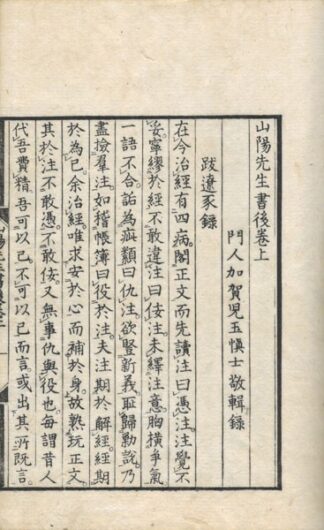 山陽先生書後卷上
門人加賀児玉愼士敬輯録
跋遼豕録
在今治經有四病闕正文而先讀注曰憑注注覺不
妥寧繆於經不敢違注曰佞注未繹注意胸横爭氣
一語不合詬為疵纇曰仇注欲豎新義耻歸勦説乃
盡撿羣注如稽帳簿曰役於注夫注期於解經經期
於為己余治經唯求安於心而補於身故熟玩正文
其於注不敢憑不敢佞又無事仇與役也毎謂昔人
代吾費精吾可以已不可以已而言或出其所既言